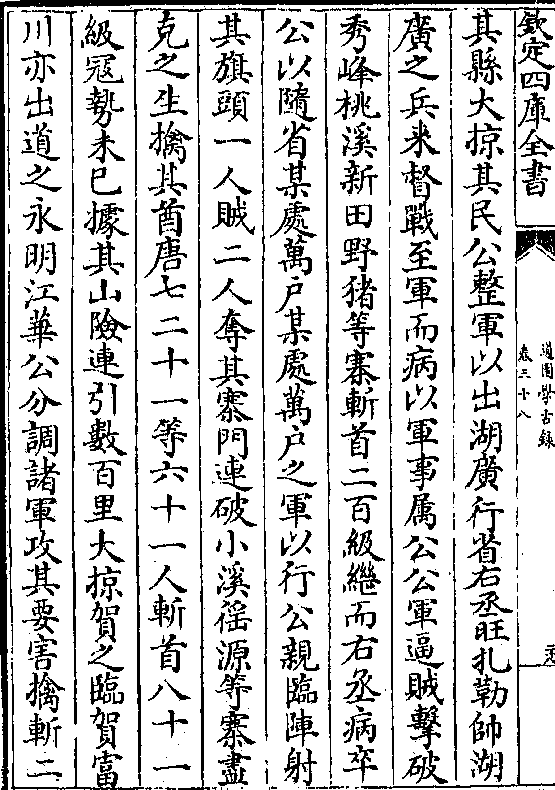 欽定四庫全書
道園學古錄
卷三十八
其縣大掠其民公整軍以出湖廣行省右丞旺扎勒帥湖
廣之兵来督戰至軍而病以軍事属公公軍逼賊擊破
秀峰桃溪新田野猪等寨斬首二百級繼而右丞病卒
公以隨省某處萬户某處萬户之軍以行公親臨陣射
其旗頭一人賊二人奪其寨門連破小溪徭源等寨盡
克之生擒其酋唐七二十一等六十一人斬首八十一
級冦勢未已據其山險連引數百里大掠賀之臨賀富
川亦出道之永明江華公分調諸軍攻其要害擒斬二